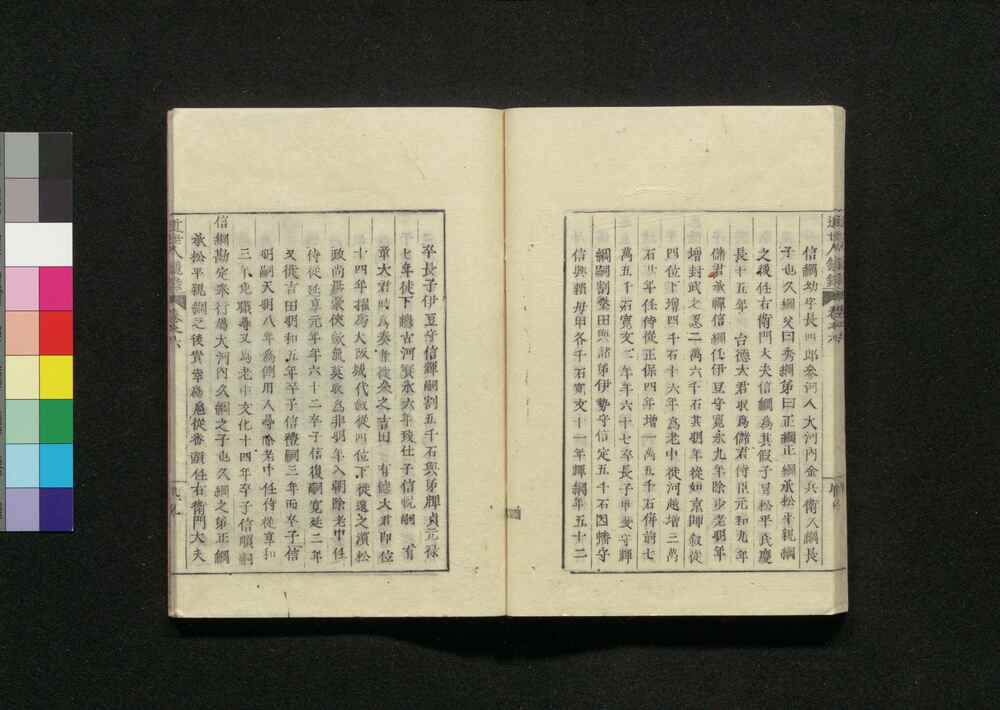 信綱幼字長四郎參河人大河內金兵衛久綱長
子也久綱父曰秀綱弟曰正綱正綱承松平親綱
之後任右衛門大夫信綱爲其假子冒松平氏慶
長十五年 台德大君取爲儲君侍臣元和九年
儲君承禪信綱任伊豆守寬永九年除少老明年
增封武之忍二萬六千石其明年從如京師敘從
四位下增四千石十六年爲老中徙河越增三萬
石廿年任侍從正保四年增一萬五千石併前七
萬五千石寬文二年年六十七卒長子甲斐守輝
綱嗣割墾田與諸弟伊勢守信定五千石因幡守
信興賴母甲各千石寬文十一年輝綱年五十二
卒長子伊豆守信輝嗣割五千石與弟輝貞元祿
七年徙下總古河寶永六年致仕子信祝嗣 有
章大君時爲奏者徙參之吉田 有德大君即位
十四年擢爲大阪城代敘從四位下徙遠之濱松
政尚
侍從延享元年年六十二卒子信復嗣寬延二年
又徙吉田明和五年卒子信禮嗣三年而卒子信
明嗣天明八年爲側用人尋除老中任侍從享和
三年免職尋又爲老中文化十四年卒子信順嗣
信綱勘定奉行大河內久綱之子也久綱之弟正綱
承松平親綱之後貴幸爲扈從番頭任右衛門大夫
近世人鏡錄 卷之六